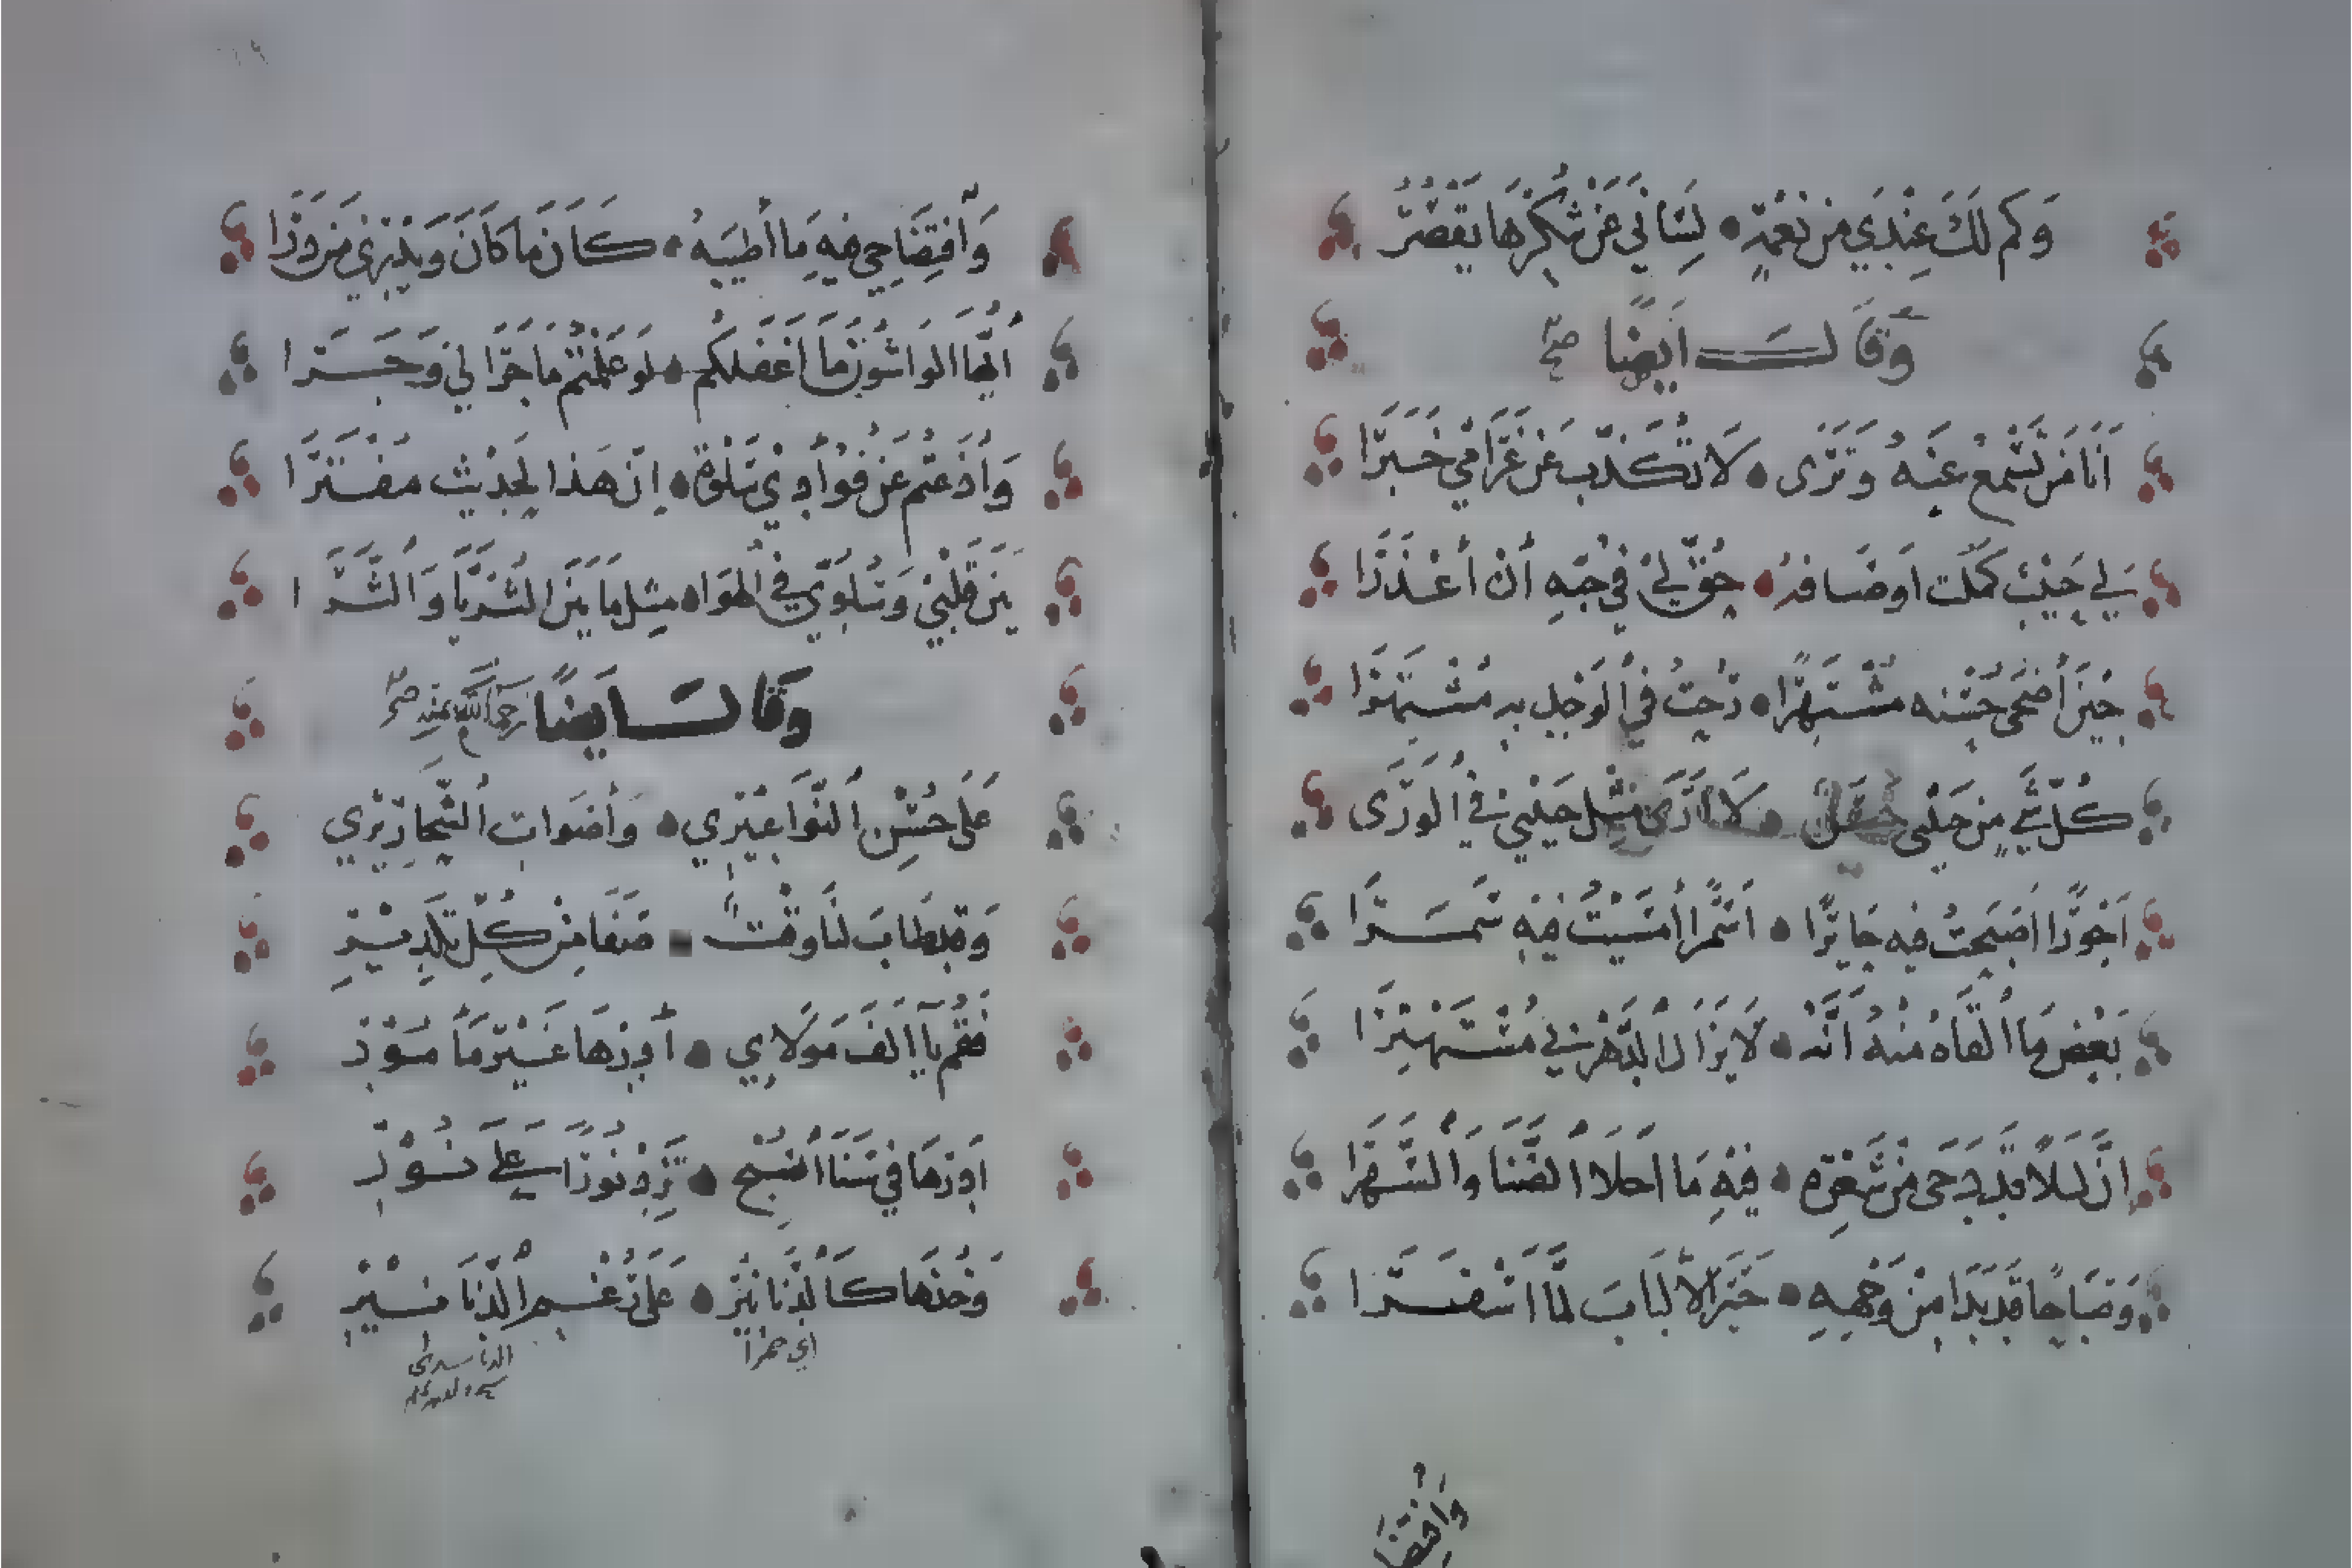 وَكَم لَكَ عِنْدِي مِن نِعْمَةٍ • لِسَانِي عَنْ شُكْرِهَا يَقْصُرُ
وَقَالَ أَيضًا صح
أَنَا مَن تَسْمَعُ عَنْهُ وَتَرَى • لَا تُكَذِّب عَن غَرَامِي خَبَرَا
لِي حَبِيْب كَمُلَت أَوصَافهُ • حُقَّ لِيْ فِي حُبِّهِ أَنْ أَعْذَرَا
حِيْنَ أَضحَى حُسْنه مُشْتَهِرًا • رُحتُ فِي الوَجدِ بهِ مُشْتَهِرَا
كُلّ شَيٍّ مِن حَبِيْبي حَسَن • لَا أَرَى مِثْل حَبِيْبي فِي الوَرَى
اَحْوَرًا اَصْبَحتُ فِيه حَايِرًا • اَسْمَرًا أَمْسَيْتُ فِيْهِ سَمَرَا
بَعْضُ مَا أَلقَاهُ مِنْهُ اَنَّهُ • لَا يَزَالُ الدَّهْر بِي مُسْتَهْتِرَا
اِنَّ لَيلًا قَد دَجَى مِنْ شَعْرِهِ • فِيْهِ مَا اَحلَا الضَّنَا وَالسَّهَرَا
وَصَبَاحًا قَد بَدَا مِنْ وَجْهِهِ • حَيَّرَ الأَلبَابَ لَمَّا اَسْفَرَا
وَافْتِضَا
وَاَفتِضَاحِي فِيهِ مَا أَطيَبَهُ • كَانَ مَا كَانَ وَيَدْرِي مَن دَرَا
أَيُّهَا الوَاشُونَ مَا اَغفَلَكُم • لَو عَلِمْتُم مَا جَرَا لِي وَجَرَا
وَأَدعَتُم عَن فُؤَادِيْ سَلْوَةً • إِنّ هَذا لَحَدِيْث مُفْتَرَا
بَيْنَ قَلْبِيْ وَسُلُوِّي فِي الهَوَا • مِثلُ مَا بَيْنَ الثُّرَيَّا وَالثَّرَا
وَقَالَ اَيضًا رَحِمَهُ اللَّهُ بمَنِّهِ صح
عَلَى حُسْنِ النَّوَاعِيْرِي • وَأَصْوَاتِ الشَّحَارِيْرِي
وَقَد طَابَ لَنَا وَقْتٌ • صَفَا مِنْ كُلِّ تَكْدِيْرِ
فَقُم يَا اَلفَ مَولَايِ • أَدِرْهَا غَيْرَ مَأمُوْرِ
اَدِرْهَا فِي سَنَا الصُّبْحِ • تَزِدْ نُورًا عَلَى نُوْرِ
وَخُذهَا كَالدَّنَانِيْرِ • عَلَى رُغْمِ الدَّنَانِيْرِ
اي حمرا